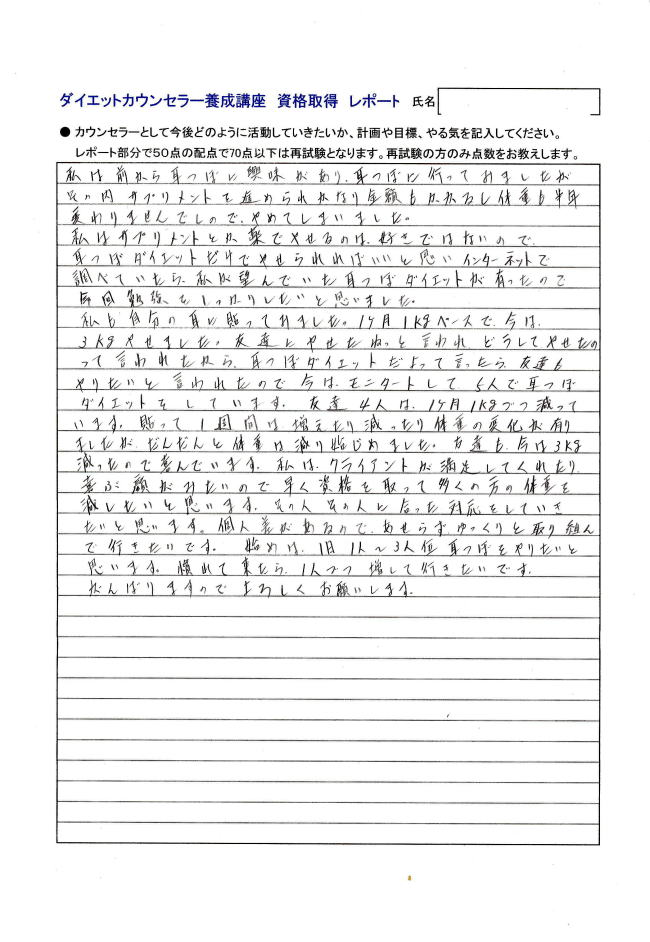 ダイエットカウンセラー養成講座 資格取得 レポート 氏名
● カウンセラーとして今後どのように活動していきたいか、計画や目標、やる気を記入してください。
レポート部分で50点の配点で70点以下は再試験となります。再試験の方のみ点数をお教えします。
私は前から耳つぼに興味があり、耳つぼに行っておりましたが
その内サプリメントを進められかなり金額もかかるし体重も半年
変わりませんでしので、やめてしまいました。
私はサプリメントとか薬でやせるのは、好きではないので、
耳つぼダイエットだけでやせられればいいと思いインターネットで
調べていたら、私が望んでいた耳つぼダイエットが有ったので
今回勉強をしっかりしたいと思いました。
私も自分の耳に貼っておりました。1ヶ月1Kgペースで、今は、
3Kgやせました。友達にやせたねっと言われ、どうしてやせたの
って言われたから、耳つぼダイエットだよって言ったら、友達も
やりたいと言われたので今は、モニタートして5人で耳つぼ
ダイエットをしています。友達4人は、1ヶ月1Kgづつ減って
います。貼って1週間は増えたり減ったり体重の変化が有り
ましたが、だんだんと体重は減り始じめました。友達も、今は3Kg
減ったので喜んでいます。私は、クライアントが満足してくれたり、
喜ぶ顔がみたいので早く資格を取って多くの方の体重を
減したいと思います。その人その人に合った対応をしていき
たいと思います。個人差があるので、あせらず、ゆっくりと取り組ん
で行きたいです。 始めは、1日1人～3人位耳つぼをやりたいと
思います。慣れて来たら、1人づつ増して行きたいです。
がんばりますのでよろしくお願いします。